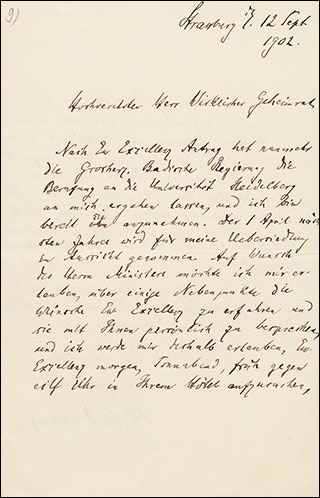 9)
Strassburg i/E. 12 Sept.
1902.
Hochverehrter Herr Wirklicher Geheimrat,
Nach Ew Exzellenz Antrag hat nunmehr
die Grosherz. Badische Regierung die
Berufung an die Universität Heidelberg
an mich ergehen lassen, und ich bin
bereit sie anzunehmen. Der 1 April näch
sten Jahres wird für meine Uebersiedlung
in Aussicht genommen. Auf Wunsch
des Herrn Ministers möchte ich mir er-
lauben, über einige Nebenpunkte die
Wünsche Ew Exzellenz zu erfahren und
sie mit Ihnen persönlich zu besprechen,
und ich werde mir deshalb erlauben, Ew
Exzellenz morgen, Sonnabend, früh gegen
eilf Uhr in Ihrem Hôtel aufzusuchen,